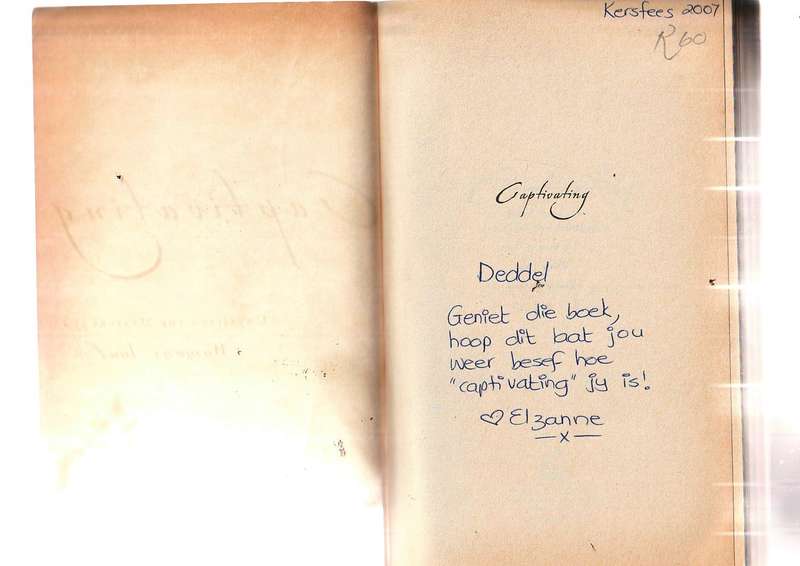 Kersfees 2007
R60
Captivating
Deddel
Geniet die boek,
hoop dit laat jou
weer besef hoe
"captivating" jy is!
♡ Elzanne
—x—